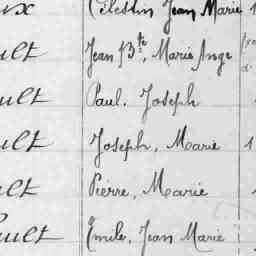 ux Célestin Jean Marie 1
ult Jean Bte, Marie Ange
ult Paul. Joseph
ult Joseph, Marie 1
ult Pierre, Marie
ault Émile, Jean Marie